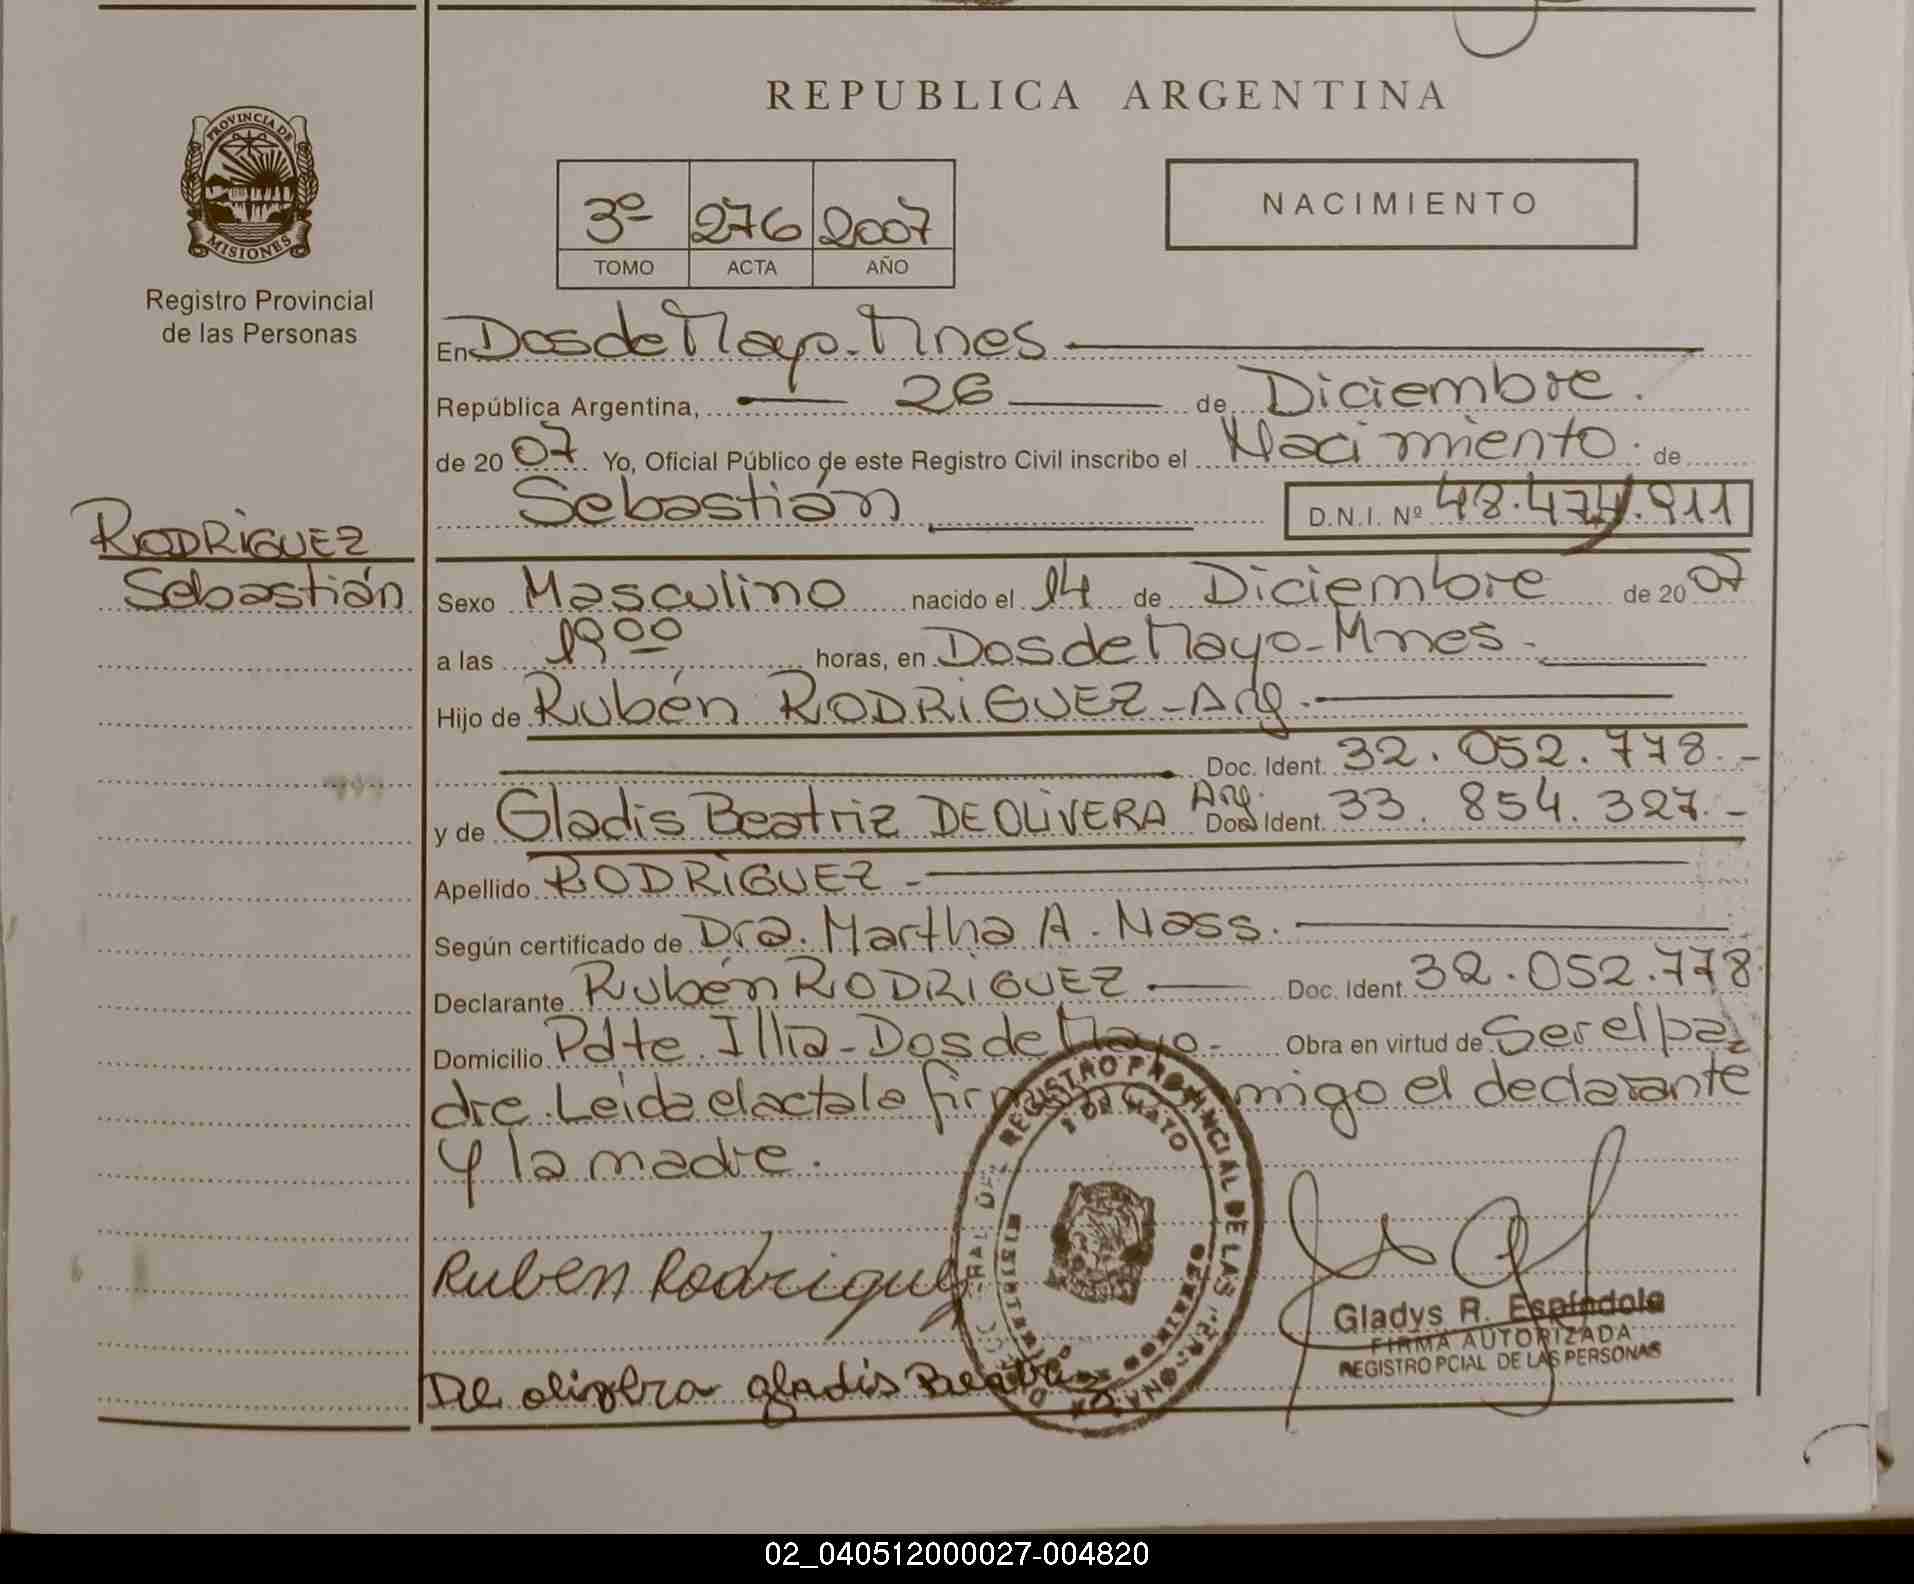 REPUBLICA ARGENTINA
PROVINCIA DE
MISIONES
Registro Provincial
de las Personas
3º 276 2007
TOMO ACTA AÑO
NACIMIENTO
En Dos de Mayo - Mnes
República Argentina, 26 de Diciembre.
de 2007 Yo, Oficial Público de este Registro Civil inscribo el Nacimiento. de
Sebastián D.N.I. Nº 48.474.911
RODRIGUEZ
Sebastián
Sexo Masculino nacido el 14 de Diciembre de 2007
a las 19 00 horas, en Dos de Mayo - Mnes -
Hijo de Rubén RODRIGUEZ - Arg.
Doc. Ident. 32.052.778.-
y de Gladis Beatriz DE OLIVERA Arg. Doc. Ident. 33.854.327.-
Apellido RODRIGUEZ -
Según certificado de Dra. Martha A. Nass.
Declarante Rubén RODRIGUEZ Doc. Ident. 32.052.778
Domicilio Pdte. Illia - Dos de Mayo - Obra en virtud de Ser el pa
dre. Leida el acta la firman conmigo el declarante
y la madre.
REGISTRO PROVINCIAL DE LAS
2 DE MAYO
MISIONES
Ruben Rodriguez
De olivera gladis Beatriz
Gladys R. Espíndola
FIRMA AUTORIZADA
REGISTRO PCIAL DE LAS PERSONAS
02_040512000027-004820